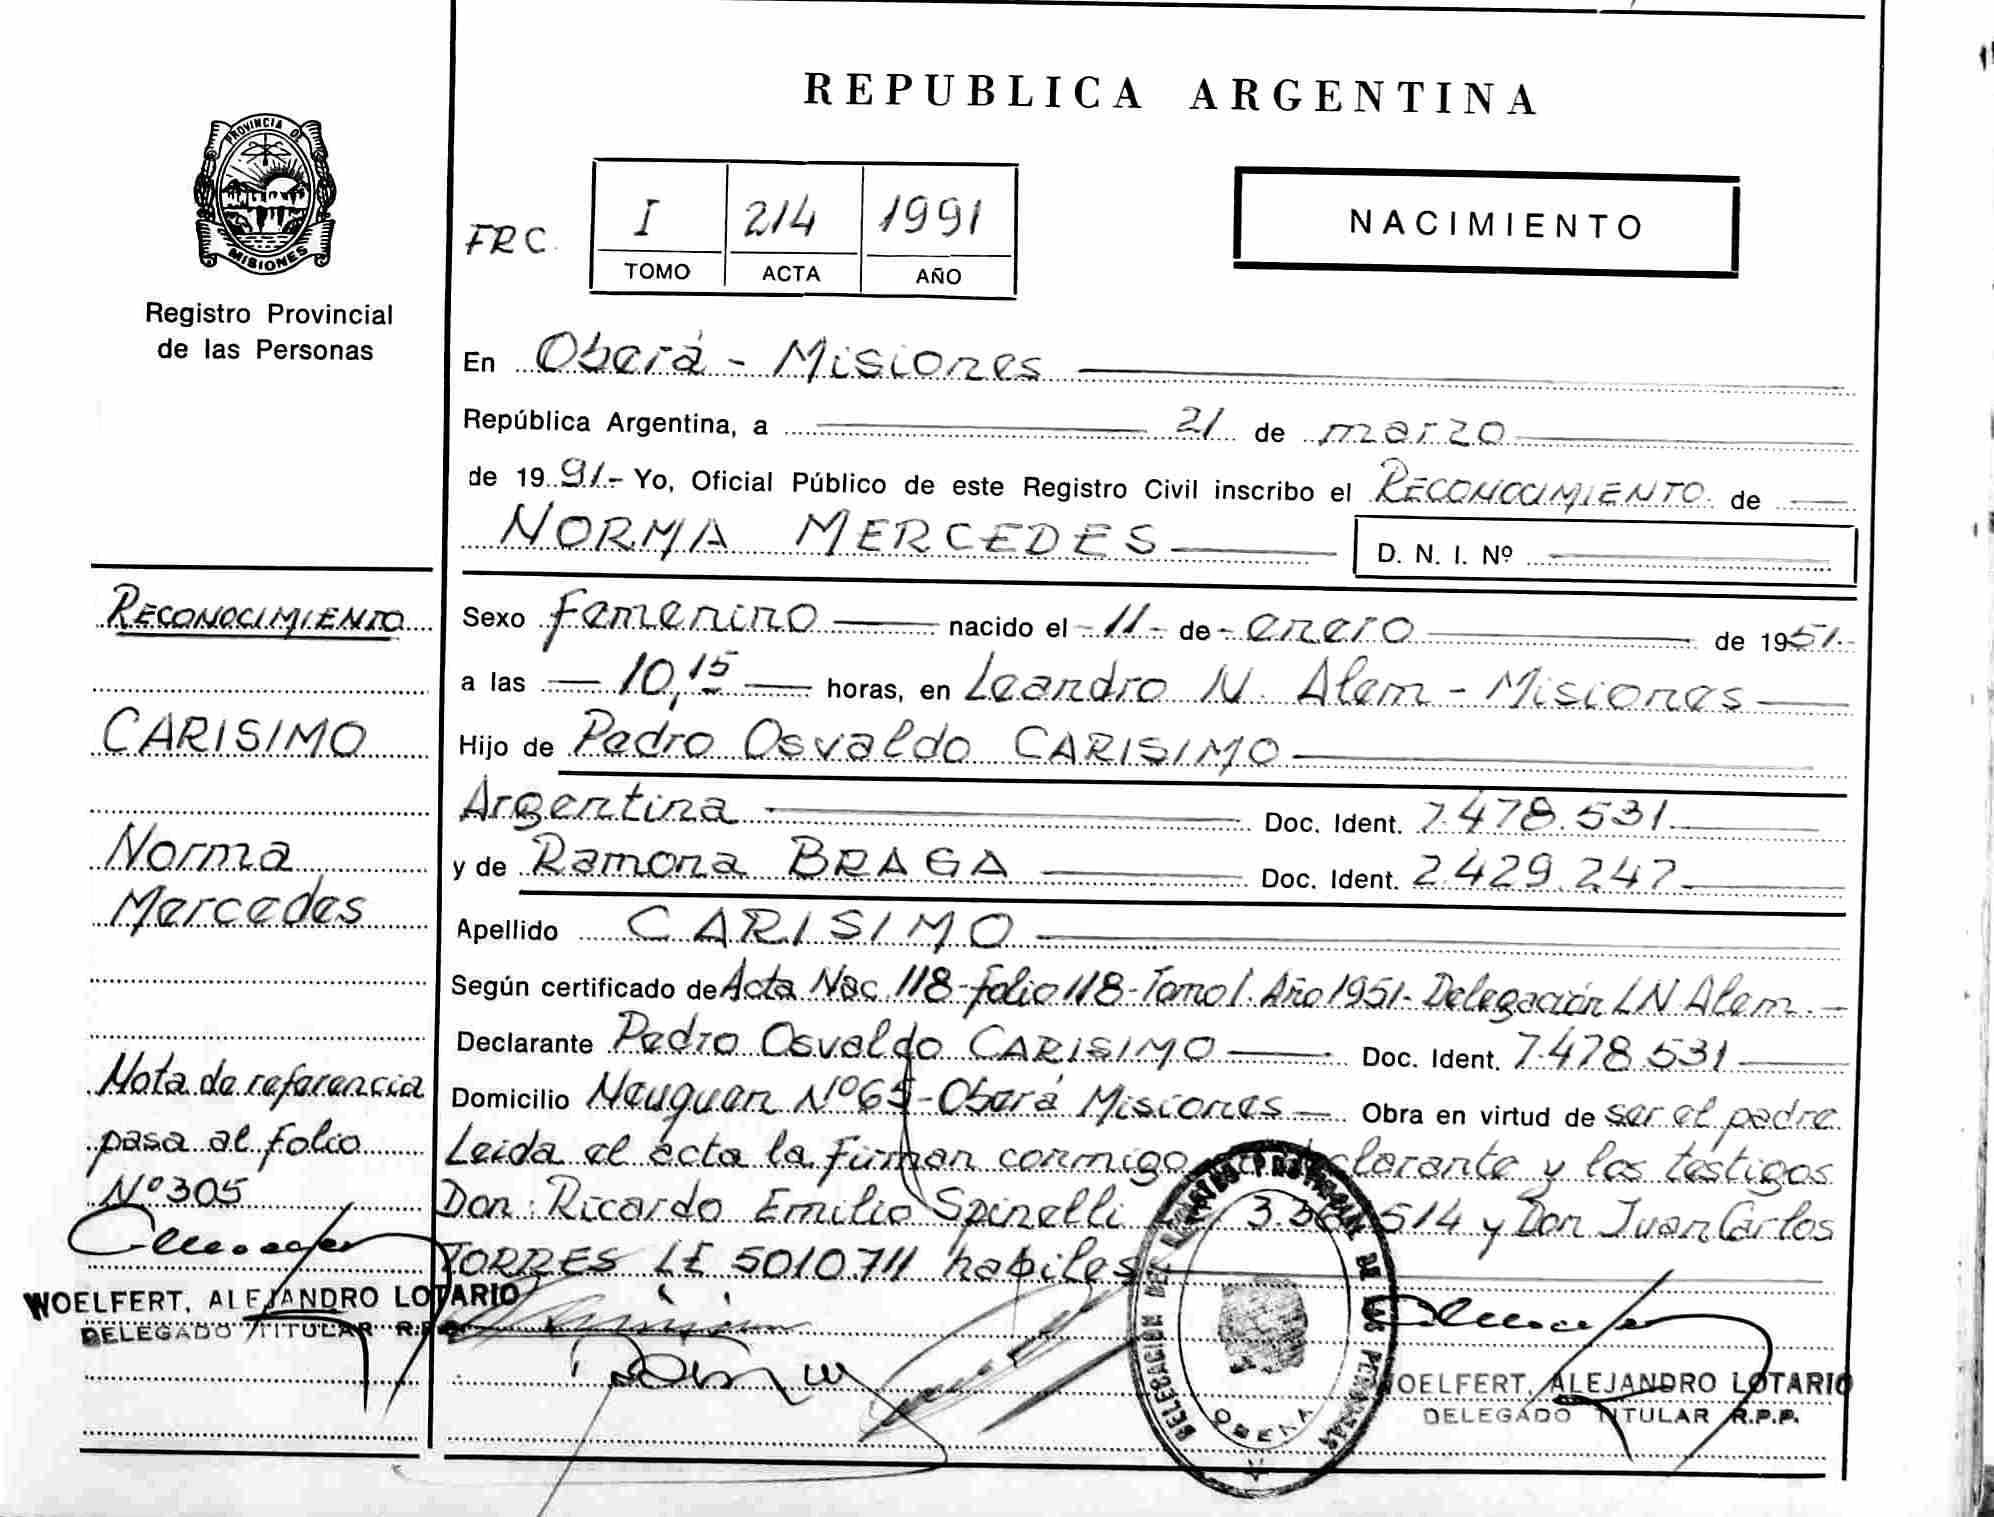 REPUBLICA ARGENTINA
PROVINCIA DE
MISIONES
Registro Provincial
de las Personas
FRC
I 214 1991
TOMO ACTA AÑO
NACIMIENTO
En Oberá - Misiones
República Argentina, a 21 de marzo
de 1991.- Yo, Oficial Público de este Registro Civil inscribo el RECONOCIMIENTO de
NORMA MERCEDES D. N. I. Nº
Sexo femenino nacido el - 11 - de - enero de 1951.-
a las 10,15 horas, en Leandro N. Alem - Misiones
Hijo de Pedro Osvaldo CARISIMO
Argentina Doc. Ident. 7.478.531
y de Ramona BRAGA Doc. Ident. 2.429.247
Apellido CARISIMO
Según certificado de Acta Nac. 118 - folio 118 - Tomo I. Año 1951 - Delegación LN Alem. -
Declarante Pedro Osvaldo CARISIMO Doc. Ident. 7.478.531
Domicilio Neuquen Nº 65 - Oberá Misiones Obra en virtud de ser el padre
Leida el acta la firman conmigo declarante y los testigos
Don: Ricardo Emilio Spinelli 514 y Don Juan Carlos
TORRES LE 5010711 habiles
RECONOCIMIENTO
CARISIMO
Norma
Mercedes
Nota de referencia
pasa al folio
Nº 305
WOELFERT, ALEJANDRO LOTARIO
DELEGADO TITULAR R.P.P.
DELEGACION DEL PROVINCIAL DE LAS PERSONAS
OBERA
WOELFERT, ALEJANDRO LOTARIO
DELEGADO TITULAR R.P.P.